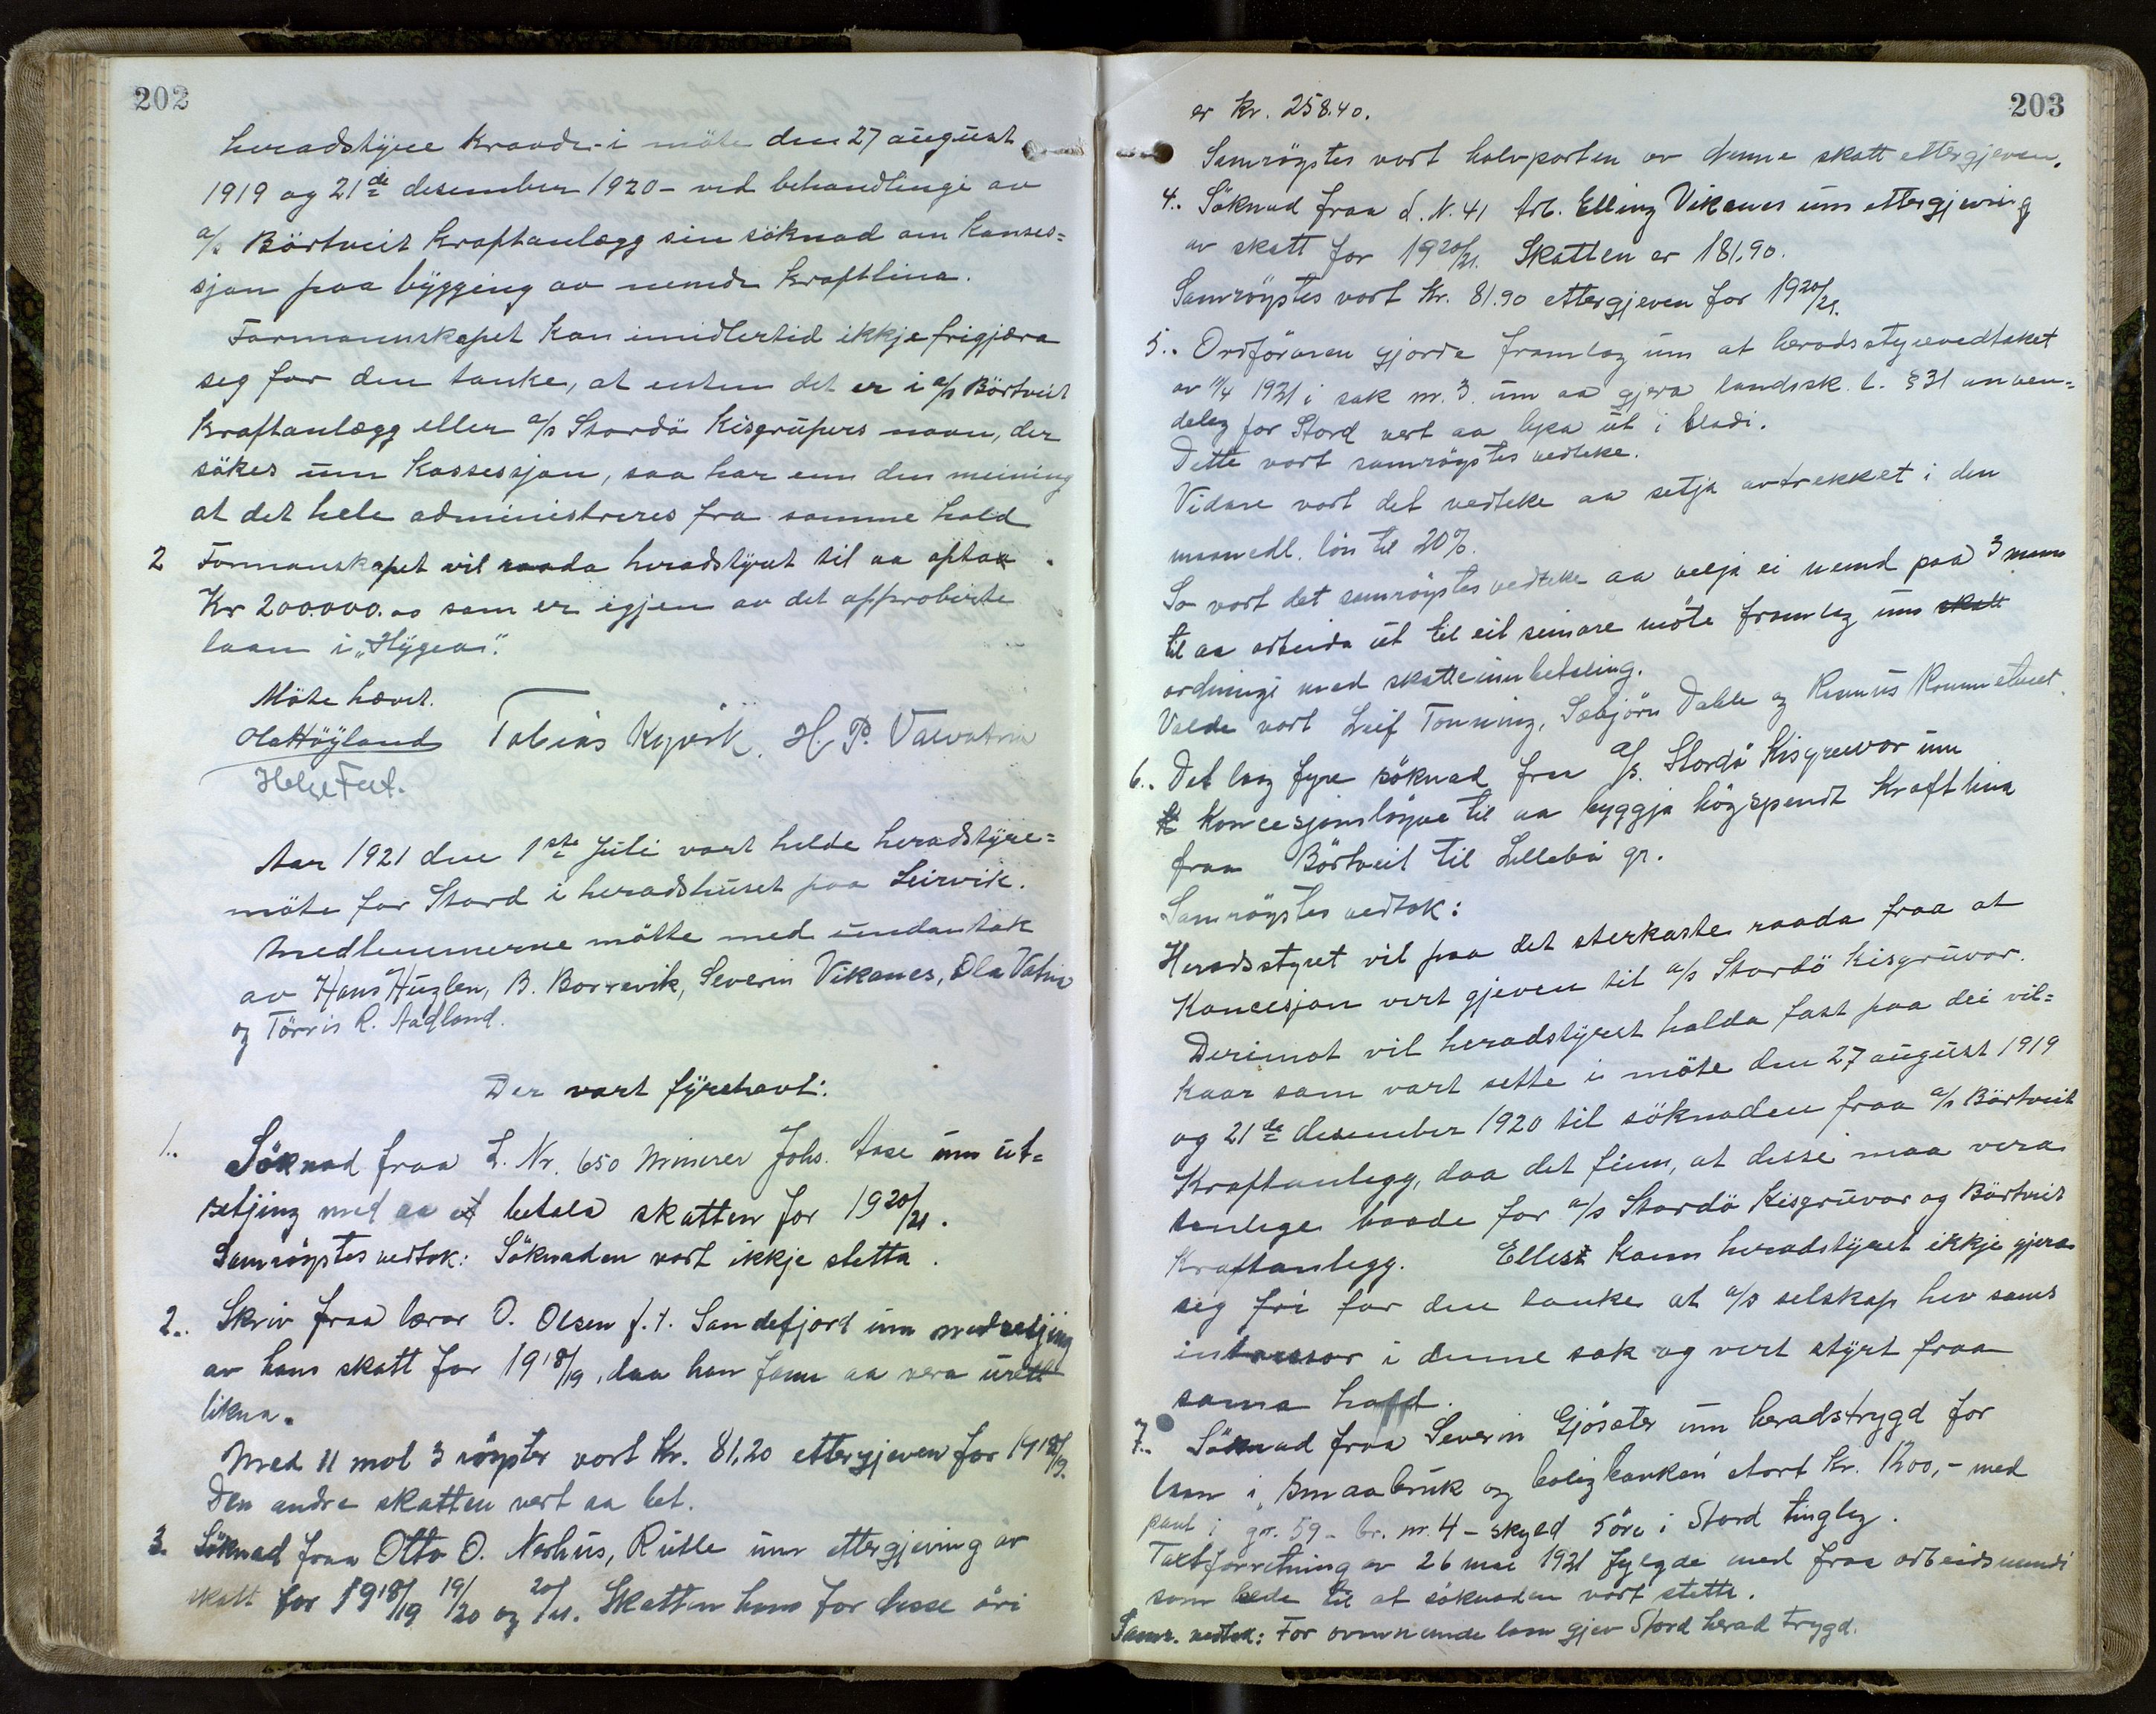 202
heradstyre kravde i möte den 27 august
1919 og 21de desember 1920 - ved behandlingi av
a/s Börtveit Kraftanlægg sin söknad om konses=
sjon paa bygging av nemde kraftlina.
Formannskapet kan imidlertid ikkje frigjæra
seg for den tanke, at enten det er i a/s Börtveit
Kraftanlægg eller a/s Stordö Kisgrubers navn, der
sökes um Kossessjon, saa har enn den meining
at det hele administreres fra samme hold
2 Formannskapet vil raada heradstyret til aa optaa
Kr 200.000.00 som er igjen av det approberte
laan i "Hygea".
Möte hævet.
Ola Höyland Tobias Kyvik. H. P. Valvatna
Helge Feet.
Aar 1921 den 1ste Juli vart helde heradstyre=
möte for Stord i heradshuset paa Leirvik.
Medlemmerne mötte med undantak
av Hans Huglen, B. Borrevik, Severin Vikanes, Ola Vatna
og Törris R. Aadland.
Der vart fyrehavt:
1. Söknad fraa L. Nr. 650 Minerer Johs. Aase um ut=
setjing med aa betala skatten for 1920/21.
Samröystes vedtok: Söknaden vort ikkje stetta.
2. Skriv fraa lærar O. Olsen f. t. Sandefjord um nedsetjing
av hans skatt for 1918/19, daa han fann aa vera urett
likna.
Med 11 mot 3 röyster vort kr. 81,20 ettergjeven for 1918/19.
Den andre skatten vert aa bet.
3. Söknad fraa Otto O. Neshus, Rutle um ettergjeving av
skatt for 1918/19 19/20 og 20/21. Skatten hans for desse åri
203
er kr. 258.40.
Samröystes vort halvparten av denne skatt ettergjeven.
4. Söknad fraa L. N. 41 Arb. Elling Vikanes um ettergjeving
av skatt for 1920/21. Skatten er 181,90.
Samröystes vort kr. 81.90 ettergjeven for 1920/21.
5. Ordföraren gjorde framlag um at heradsstyrevedtaket
av 11/4 1921 i sak nr. 3 um aa gjera landssk. l. § 31 anven=
deleg for Stord vert aa lysa ut i bladi.
Dette vort samröystes vedteke.
Vidare vort det vedteke aa setja avtrekket i den
maanedl. lön til 20%.
So vort det samröystes vedteke aa velja ei nemd paa 3 mann
til aa arbeida ut til eit seinare möte framlag um skatt
ordningi med skatteinnbetaling.
Valde vart Leif Tonning, Sæbjörn Dahle og Rasmus Rommetveit.
6. Det laag fyre söknad fraa a/s. Stordö Kisgruvor um
Koncesjonslöyve til aa byggja högspendt Kraftlina
fraa Börtveit til Lillebö gr.
Samröystes vedtok:
Heradsstyret vil paa det sterkaste raada fraa at
Koncesjon vert gjeven til a/s Stordö Kisgruvor.
Derimot vil heradstyret halda fast paa dei vil=
kaar som vart sette i möte den 27 august 1919
og 21de desember 1920 til söknaden fraa a/s Börtveit
Kraftanlegg, daa det finn, at desse maa vera
tenlege baade for a/s Stordö Kisgruvor og Börtveit
Kraftanlegg. Ellest kann heradstyret ikkje gjera
seg fri for den tanke at a/s selskap hev sams
interessor i denne sak og vert styrt fraa
sama hald.
7. Söknad fraa Severin Gjösæter um heradstrygd for
laan i "Smaabruk og boligbanken" stort kr. 1200,- med
pant i gnr. 59 - br. nr. 4 - skyld 5 öre i Stord tinglag.
Takstforretning av 26 mai 1921 fylgde med fraa arbeidsnemdi
som bede til at söknaden vort stetta.
Samr. vedtok: For ovannemnde laan gjev Stord herad trygd.